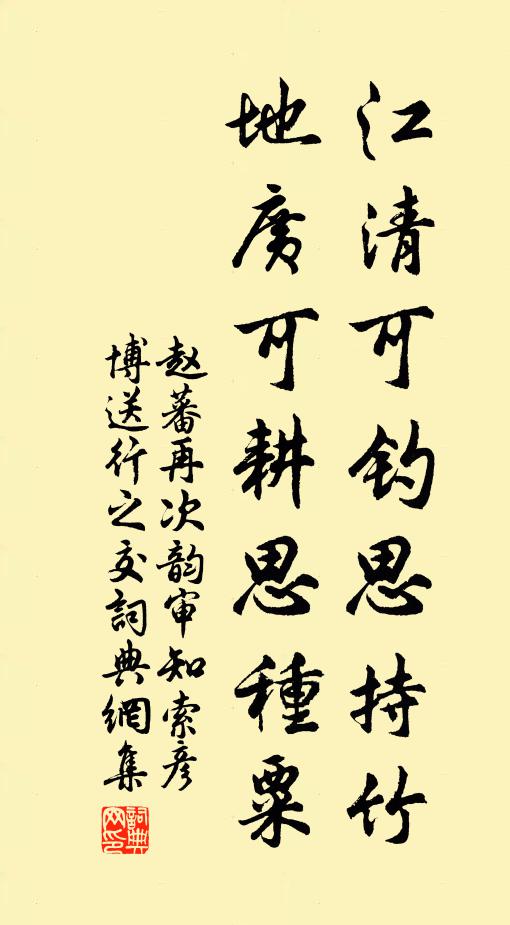 江清可钓思持竹
地廣可耕思種粟
赵蕃再次韵审知索彦
博送行之交詞典網集
詞典網印